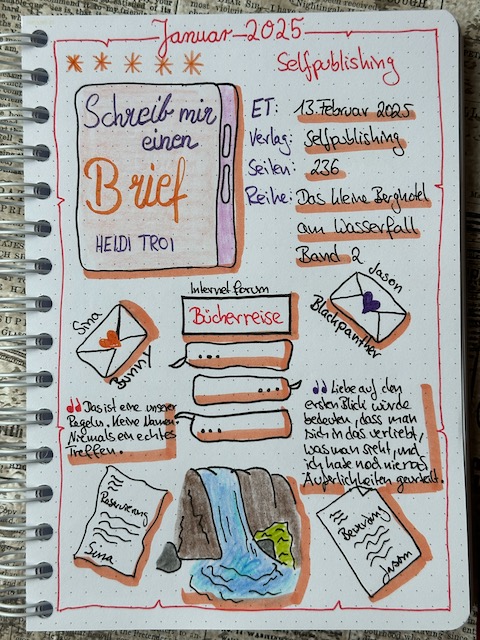 Januar 2025
Selfpublishing
Schreib mir
einen
Brief
HEIDI TROI
ET: 13. Februar 2025
Verlag: Selfpublishing
Seiten: 236
Reihe: Das kleine Berghotel
am Wasserfall
Band 2
Sina
Bunny
Internetforum
Bücherreise
Jason
Blackpanther
Das ist eine unserer
Regeln. Keine Namen.
Niemals ein echtes
Treffen.
Liebe auf den
ersten Blick würde
bedeuten, dass man
sich in das verliebt,
was man sieht, und
ich habe noch nie
Äußerlichkeiten
Reservierung
Sina
Bewerbung
Jason